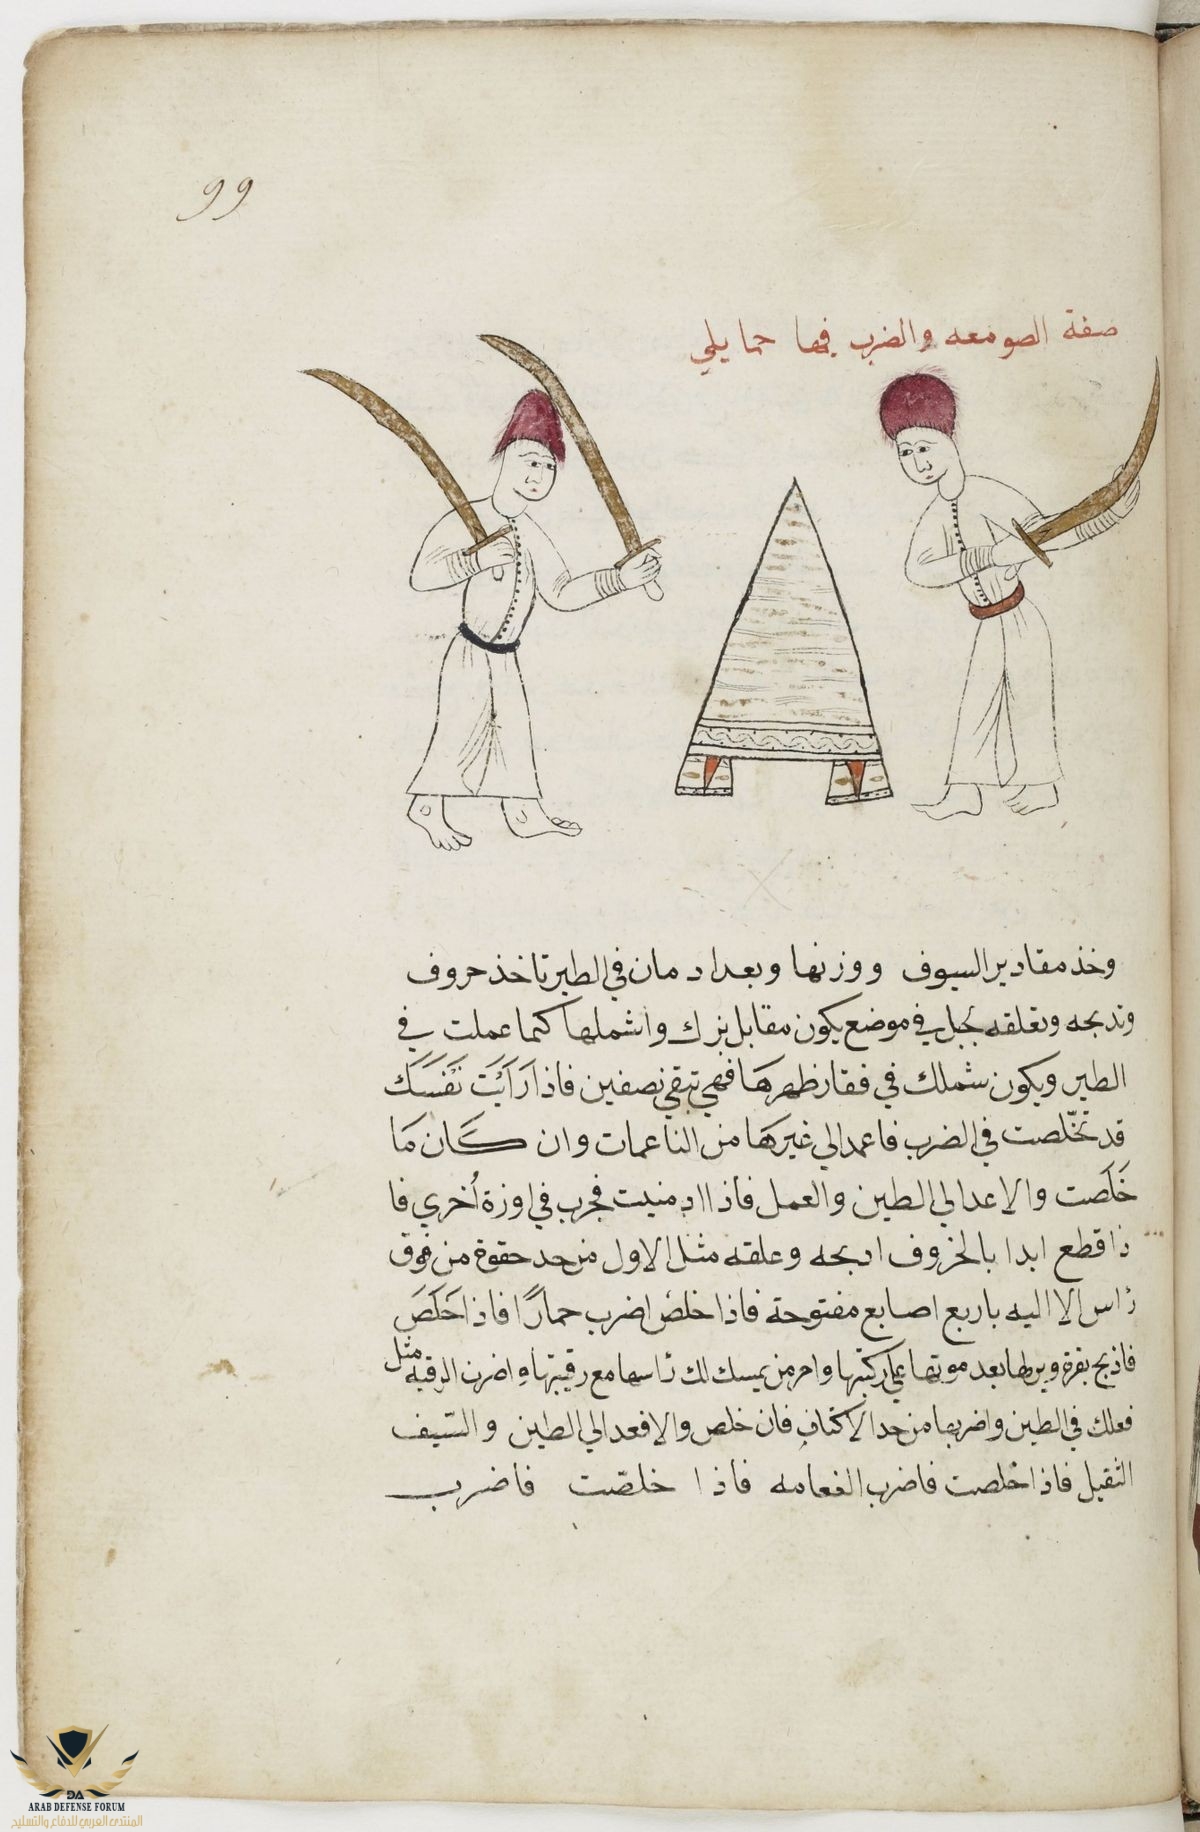 99
صفة الصومعه والضرب فيها حمايلي
وخذ مقادير السيوف ووزنها وبعد ادمان في الطير تاخذ حروف
وتدبحه وتعلقه بحبل في موضع يكون مقابل بزك واشملها كما عملت في
الطير ويكون شملك في فقار ظهرها فهي تبقي نصفين فاذا رَايْت نَفْسَك
قد تخّلصت في الضرب فاعمد الي غيرها من الناعمات وان كَان مَا
خَلَصت والا عد الي الطين والعمل فاذا ادمنيت فجرب في اوزة أخري فا
ذا قطع ابدا بالخزوف ادبحه وعلقه مثل الاول من حد حقوة من فوق
راس الا اليه باربع اصابع مفتوحة فاذا خلص اضرب حمارًا فاذا خَلَصَ
فاذبح بقرة ويربطها بعد موتها علي ركبتها وامر من يمسك لك راسها مع رقبتها واضرب الرقبه مثل
فعلك في الطين واضربها من حد الاكتاف فان خلص والا فعد الي الطين والسّيف
الثقيل فاذا خلصت فاضرب النعامه فاذا خلصّت فاضرب
ARAB DEFENSE FORUM
المنتدى العربي للدفاع والتسليح